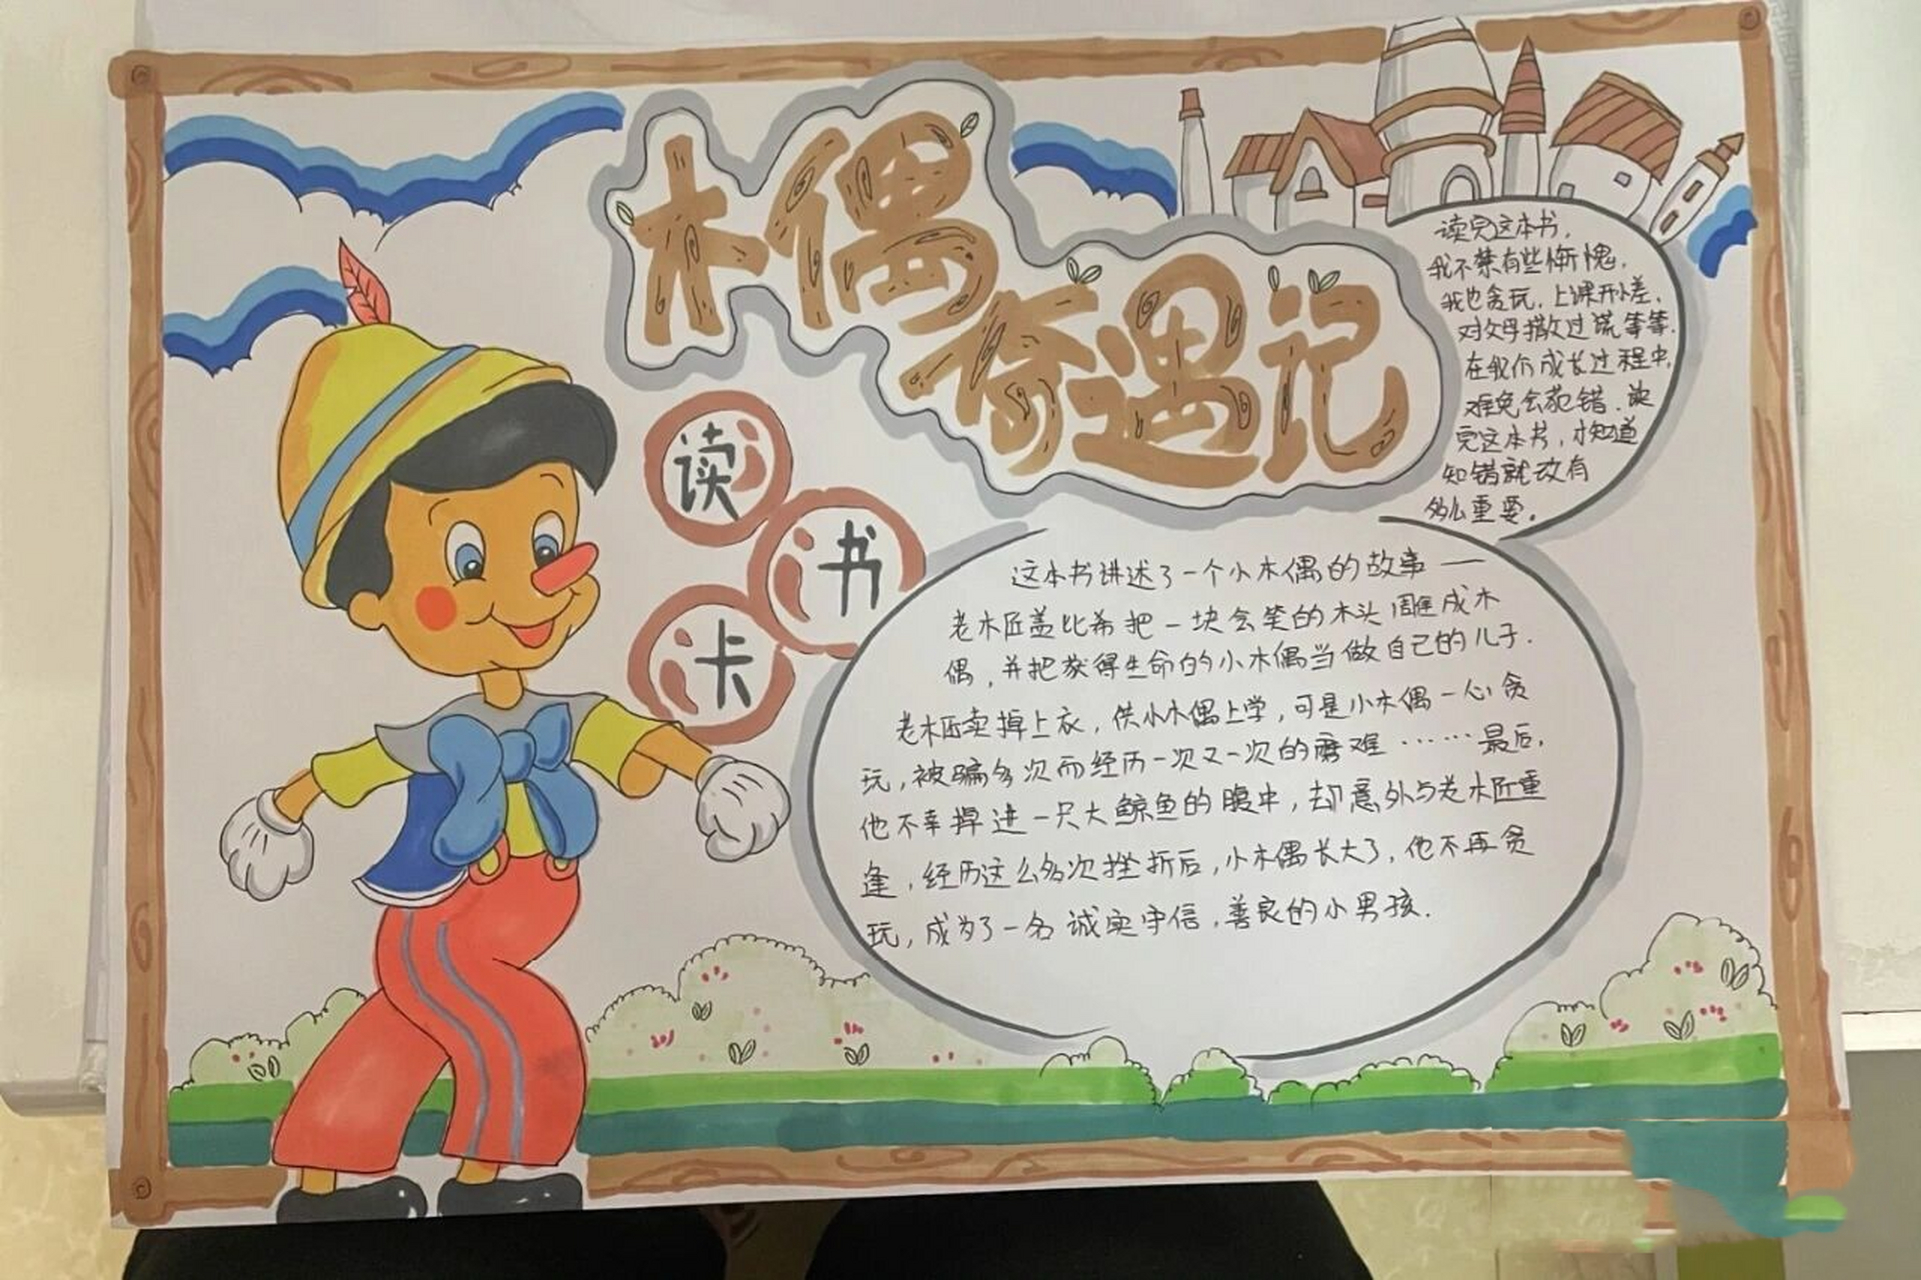 木偶
奇遇记
读
书
卡
读完这本书，
我不禁有些惭愧，
我也贪玩，上课开小差，
对父母撒过谎等等.
在我们成长过程中，
难免会犯错.读
完这本书，才知道
知错就改有
多么重要。
这本书讲述了一个小木偶的故事——
老木匠盖比希把一块会笑的木头雕成木
偶，并把获得生命的小木偶当做自己的儿子.
老木匠卖掉上衣，供小木偶上学，可是小木偶一心贪
玩，被骗多次而经历一次又一次的磨难……最后，
他不幸掉进一只大鲸鱼的腹中，却意外与老木匠重
逢，经历这么多次挫折后，小木偶长大了，他不再贪
玩，成为了一名诚实守信，善良的小男孩.